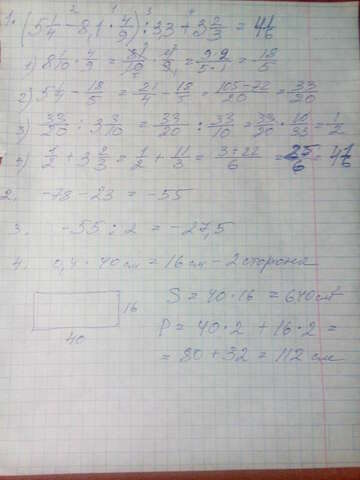 2 1 3 4
1. (5 1/4 − 8,1 · 4/9) : 3,3 + 3 2/3 = 4 1/6
1) 8 1/10 · 4/9 = 81/10 · 4/9 = 9·2/5·1 = 18/5
2) 5 1/4 − 18/5 = 21/4 − 18/5 = 105−72/20 = 33/20
3) 33/20 : 3 3/10 = 33/20 : 33/10 = 33/20 · 10/33 = 1/2
4) 1/2 + 3 2/3 = 1/2 + 11/3 = 3+22/6 = 25/6 = 4 1/6
2. −78 − 23 = −55
3. −55 : 2 = −27,5
4. 0,4 · 40 см = 16 см − 2 сторона
S = 40 · 16 = 640 см²
16
P = 40 · 2 + 16 · 2 =
40
= 80 + 32 = 112 см